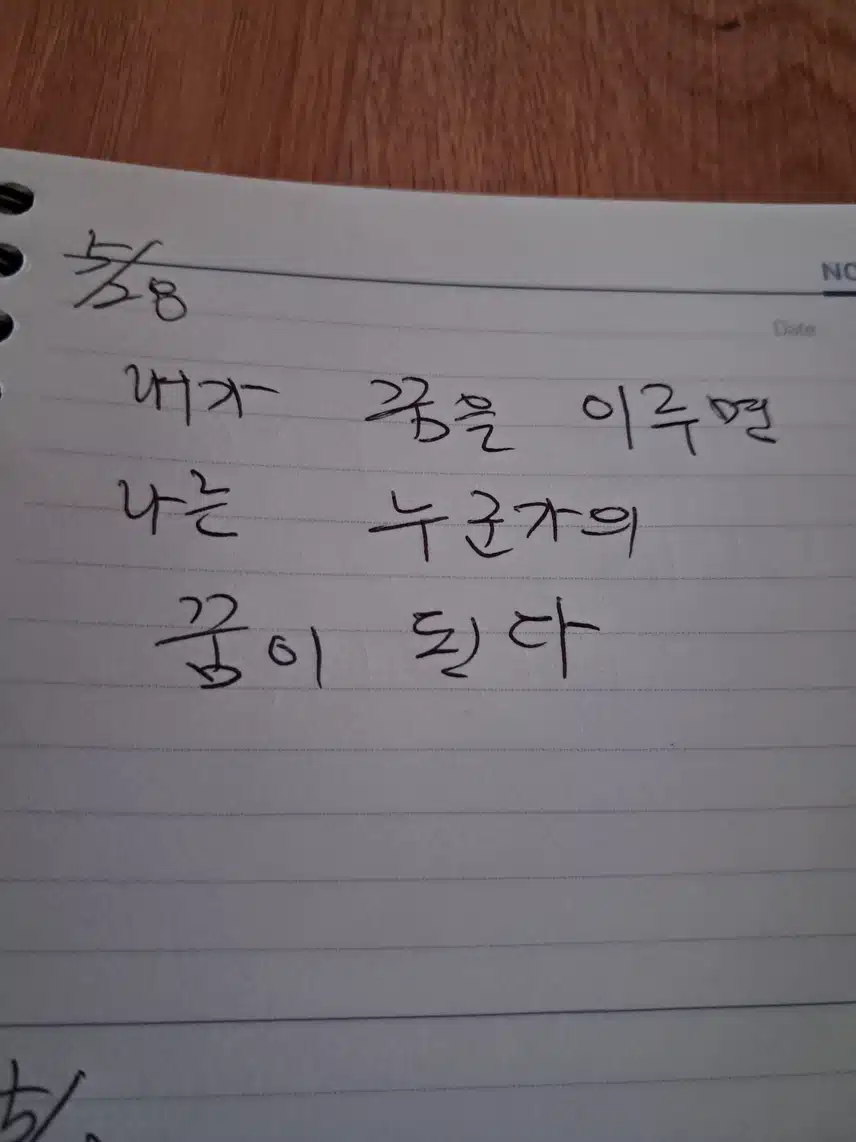 5/28
NO
Date
내가 꿈을 이루면
나는 누군가의
꿈이 된다
5/